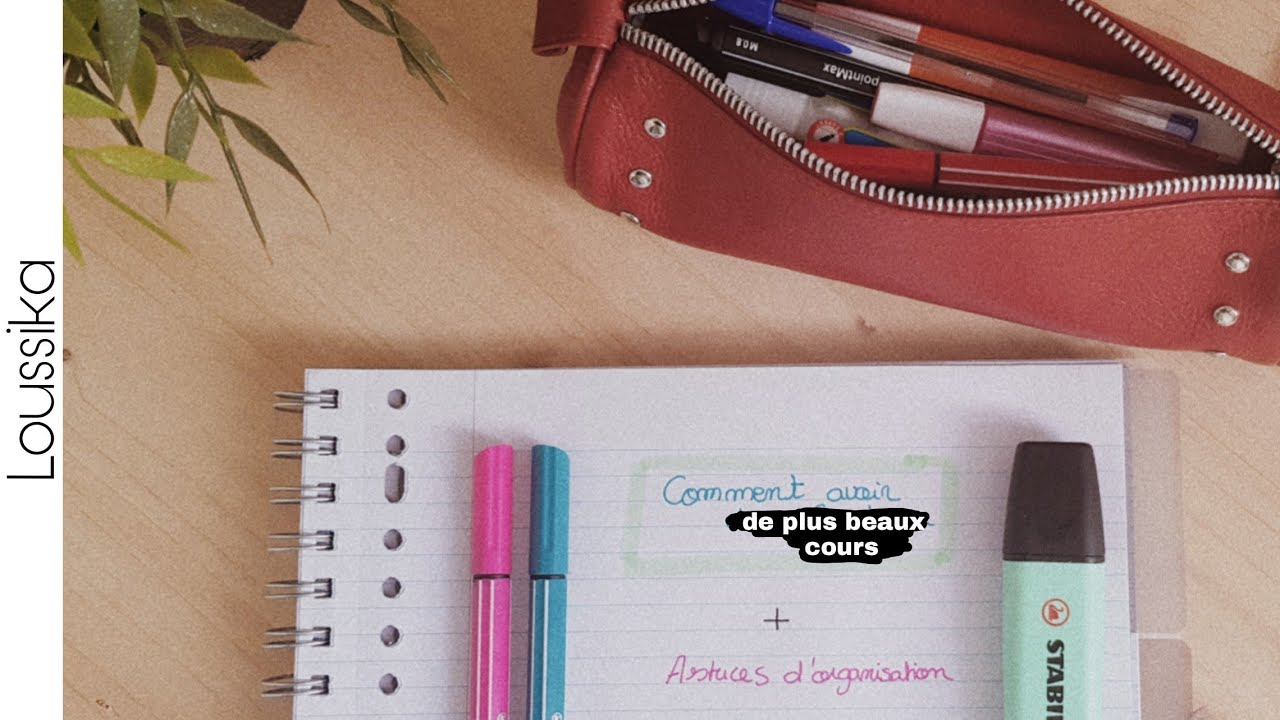 Loussika
M0.8
pointMax
Comment avoir
de plus beaux
cours
+
Astuces d'organisation
STABI